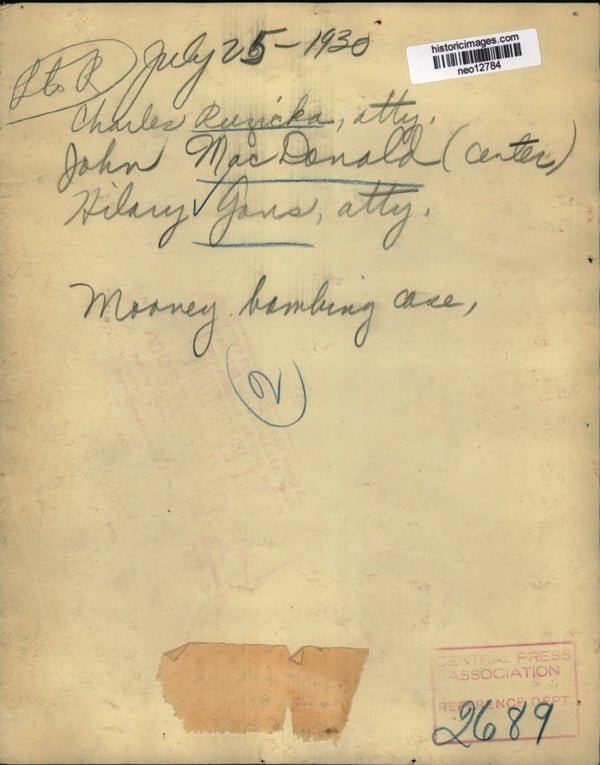 L to R July 25-1930
historicimages.com
neo12784
Charles Ruzicka, atty.
John MacDonald (center)
Hilary Gans, atty.
Mooney bombing case,
2
CENTRAL PRESS
ASSOCIATION
REFERENCE DEPT
2689